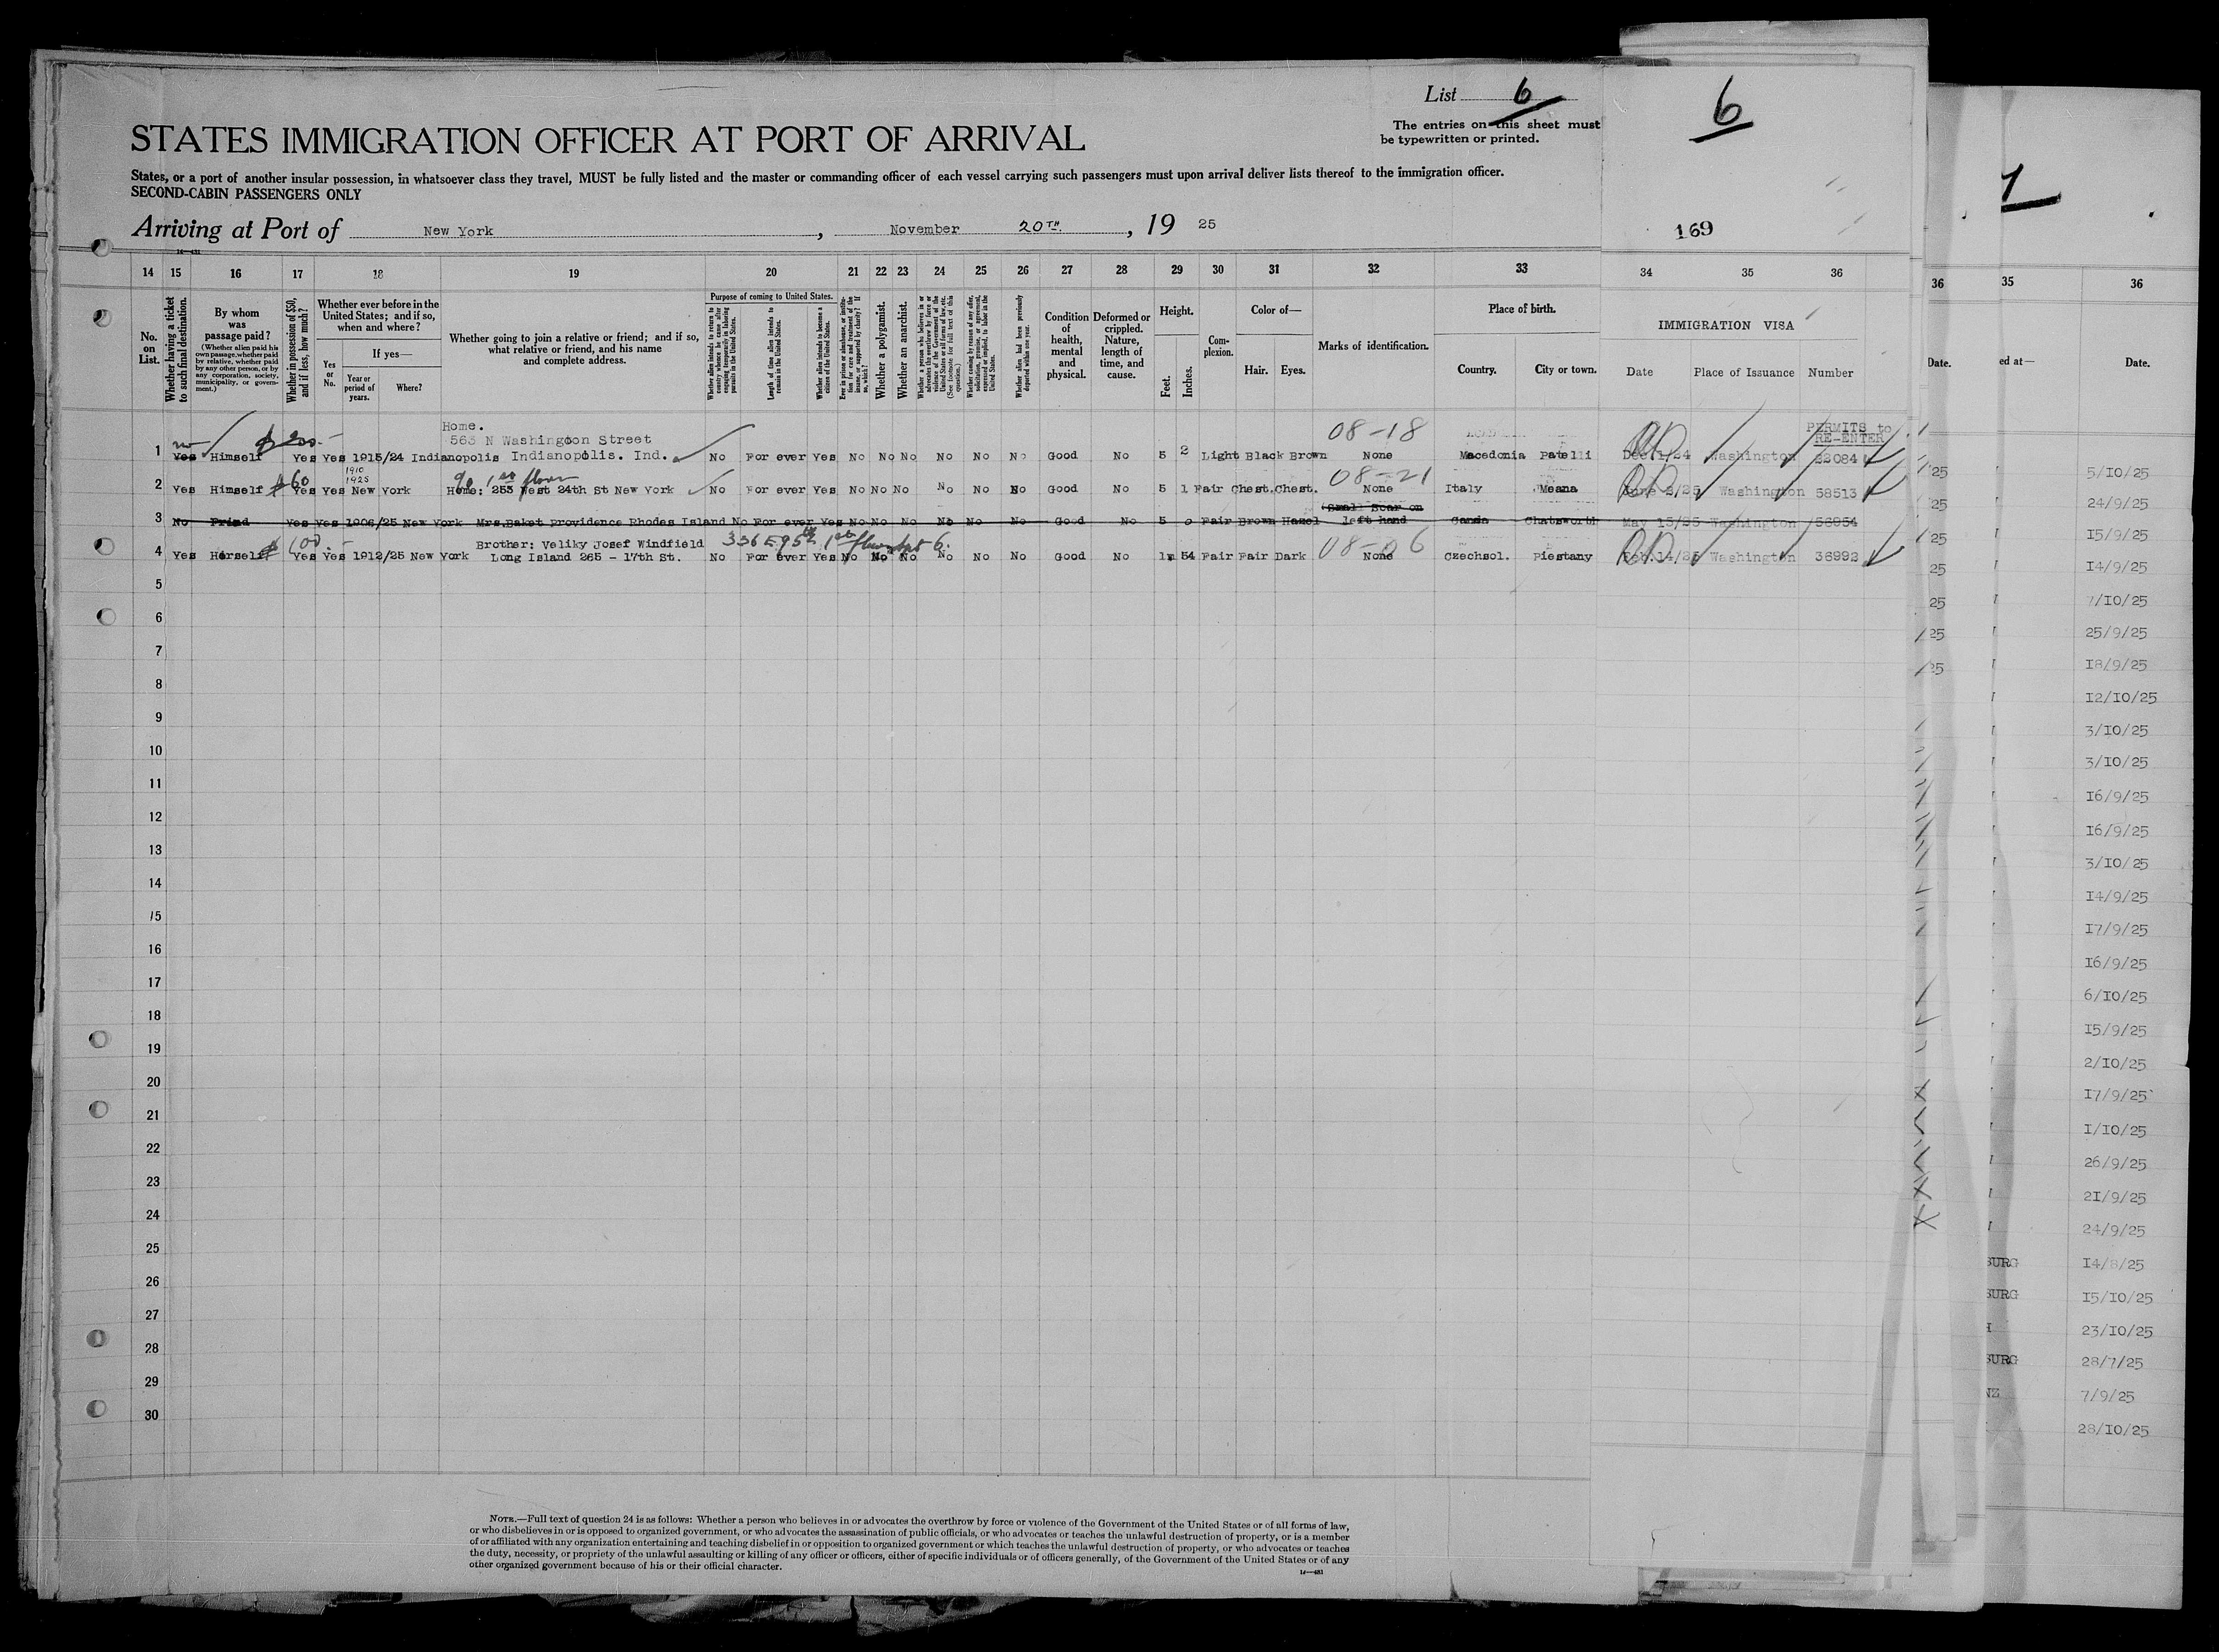 List 6
6
The entries on this sheet must
be typewritten or printed.
STATES IMMIGRATION OFFICER AT PORT OF ARRIVAL
States, or a port of another insular possession, in whatsoever class they travel, MUST be fully listed and the master or commanding officer of each vessel carrying such passengers must upon arrival deliver lists thereof to the immigration officer.
SECOND-CABIN PASSENGERS ONLY
Arriving at Port of New York, November 20TH, 19 25
169
14 15 16 17 18 19 20 21 22 23 24 25 26 27 28 29 30 31 32 33 34 35 36
36 35 36
No. on List.
Whether having a ticket to such final destination.
By whom was passage paid?
(Whether alien paid his own passage, whether paid by relative, whether paid by any other person, or by any corporation, society, municipality, or government.)
Whether in possession of $50, and if less, how much?
Whether ever before in the United States; and if so, when and where?
Yes or No.
If yes—
Year or period of years.
Where?
Whether going to join a relative or friend; and if so, what relative or friend, and his name and complete address.
Purpose of coming to United States.
Whether alien intends to return to country whence he came after engaging temporarily in laboring pursuits in the United States.
Length of time alien intends to remain in the United States.
Whether alien intends to become a citizen of the United States.
Ever in prison or almshouse, or institution for care and treatment of the insane, or supported by charity? If so, which?
Whether a polygamist.
Whether an anarchist.
Whether coming by reason of any offer, solicitation, promise, or agreement, expressed or implied, to labor in the United States.
Whether alien had been previously deported within one year.
Condition of health, mental and physical.
Deformed or crippled. Nature, length of time, and cause.
Height.
Feet.
Inches.
Complexion.
Color of—
Hair. Eyes.
Marks of identification.
Place of birth.
Country. City or town.
IMMIGRATION VISA
Date Place of Issuance Number
Date. ed at— Date.
PERMITS to
RE-ENTER
Home.
563 N Washington Street
08-18
1 no Yes Himself $200.- Yes Yes 1915/24 Indianopolis Indianopolis. Ind. No For ever Yes No No No No No No Good No 5 2 Light Black Brown None Macedonia Patelli Dec.1/24 Washington 22084
1910
1925
% 1st floor
08-21
2 Yes Himself $60 Yes Yes New York Home: 253 West 24th St New York No For ever Yes No No No No No No Good No 5 1 Fair Chest. Chest. None Italy Meana June 2/25 Washington 58513
Small Scar on
3 No Yes Yes 1906/25 New York Mrs.Baket Providence Rhodes Island No For ever Yes No No No No No No Good No 5 0 Fair Brown Hazel left hand Chatsworth May 15/25 Washington 56954
Brother: Veliky Josef Windfield 336 E 95th 1st floor Apt 6.
4 Yes Herself $100.- Yes Yes 1912/25 New York Long Island 265 - 17th St. No For ever Yes No No No No No No Good No 1m 54 Fair Fair Dark 08-06 None Czechsol. Piestany Feb.14/25 Washington 36992
5
6
7
8
9
10
11
12
13
14
15
16
17
18
19
20
21
22
23
24
25
26
27
28
29
30
25
25
25
25
25
25
25
5/10/25
24/9/25
15/9/25
14/9/25
7/10/25
25/9/25
18/9/25
12/10/25
3/10/25
3/10/25
16/9/25
16/9/25
3/10/25
14/9/25
17/9/25
16/9/25
6/10/25
15/9/25
2/10/25
17/9/25
1/10/25
26/9/25
21/9/25
24/9/25
BURG 14/8/25
BURG 15/10/25
23/10/25
BURG 28/7/25
NZ 7/9/25
28/10/25
NOTE.—Full text of question 24 is as follows: Whether a person who believes in or advocates the overthrow by force or violence of the Government of the United States or of all forms of law,
or who disbelieves in or is opposed to organized government, or who advocates the assassination of public officials, or who advocates or teaches the unlawful destruction of property, or is a member
of or affiliated with any organization entertaining and teaching disbelief in or opposition to organized government or which teaches the unlawful destruction of property, or who advocates or teaches
the duty, necessity, or propriety of the unlawful assaulting or killing of any officer or officers, either of specific individuals or of officers generally, of the Government of the United States or of any
other organized government because of his or their official character.
14—481